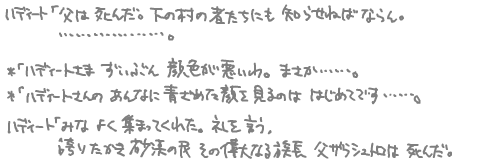 ハディート「父は 死んだ。下の村の者たちにも 知らせねば ならん。
………………。
*「ハディートさま ずいぶん 顔色が悪いわ。まさか……。
*「ハディートさんの あんなに 青ざめた顔を 見るのは はじめてです……。
ハディート「みな よく 集まってくれた。礼を言う。
誇りたかき 砂漠の民 その偉大なる族長 父ザラシュトロは 死んだ。